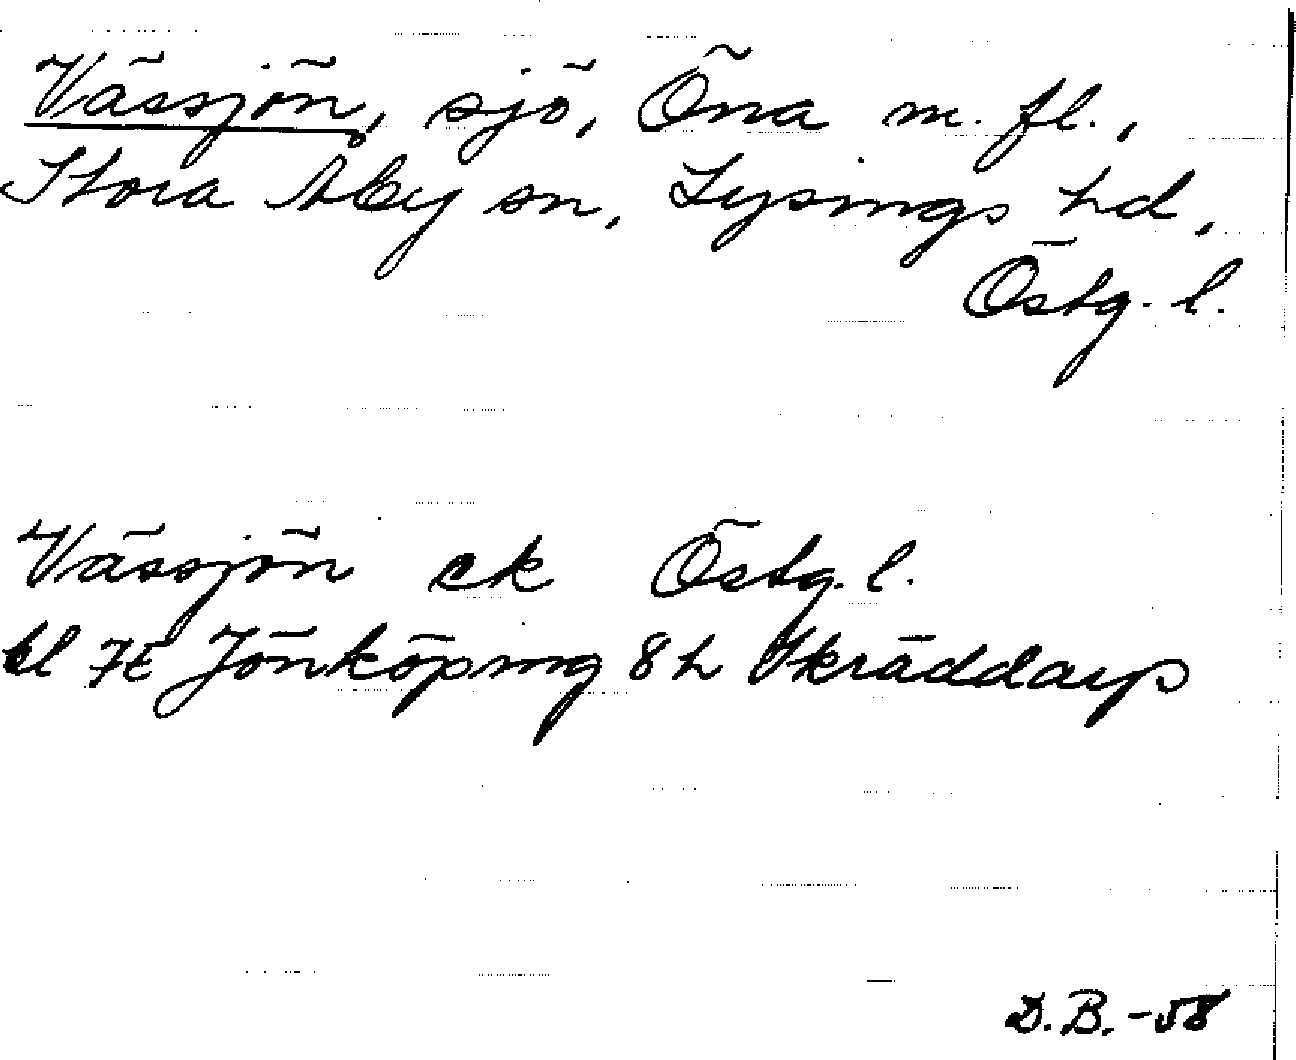 Vässjön, sjö, Öna m. fl.,
Stora Åby sn, Lysings hd,
Östg. l.
Vässjön ek Östg. l.
bl 7E Jönköping 8h Skräddarp
D.B. -58